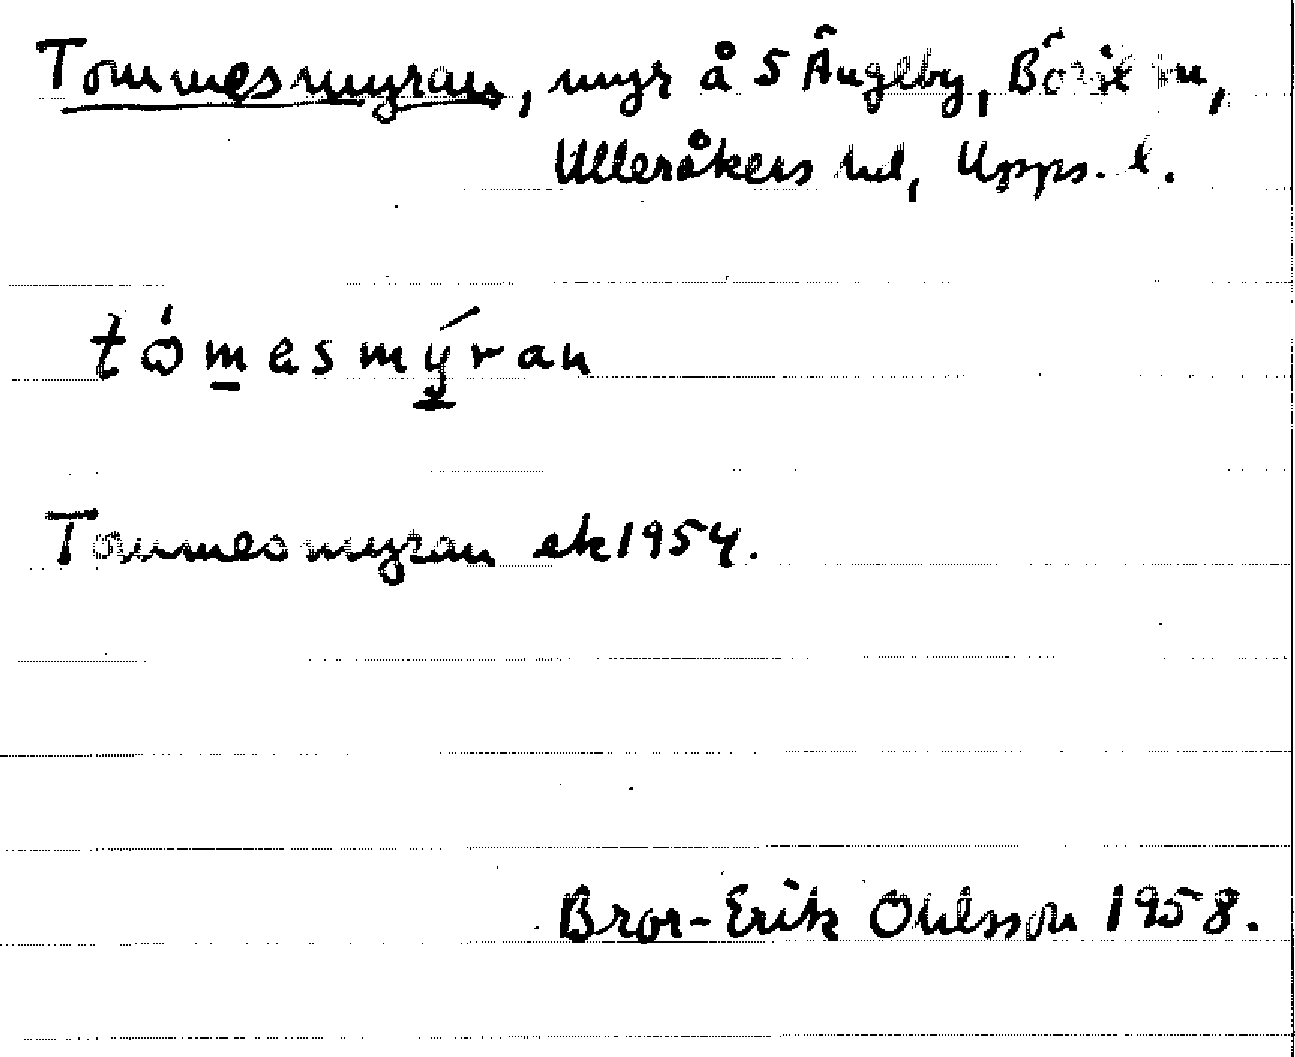 Tommesmyran, myr å S Ängeby, Börje sn,
Ulleråkers hd, Upps. l.
tómesmýran
Tommesmyran ek 1954.
Bror-Erik Ohlsson 1958.